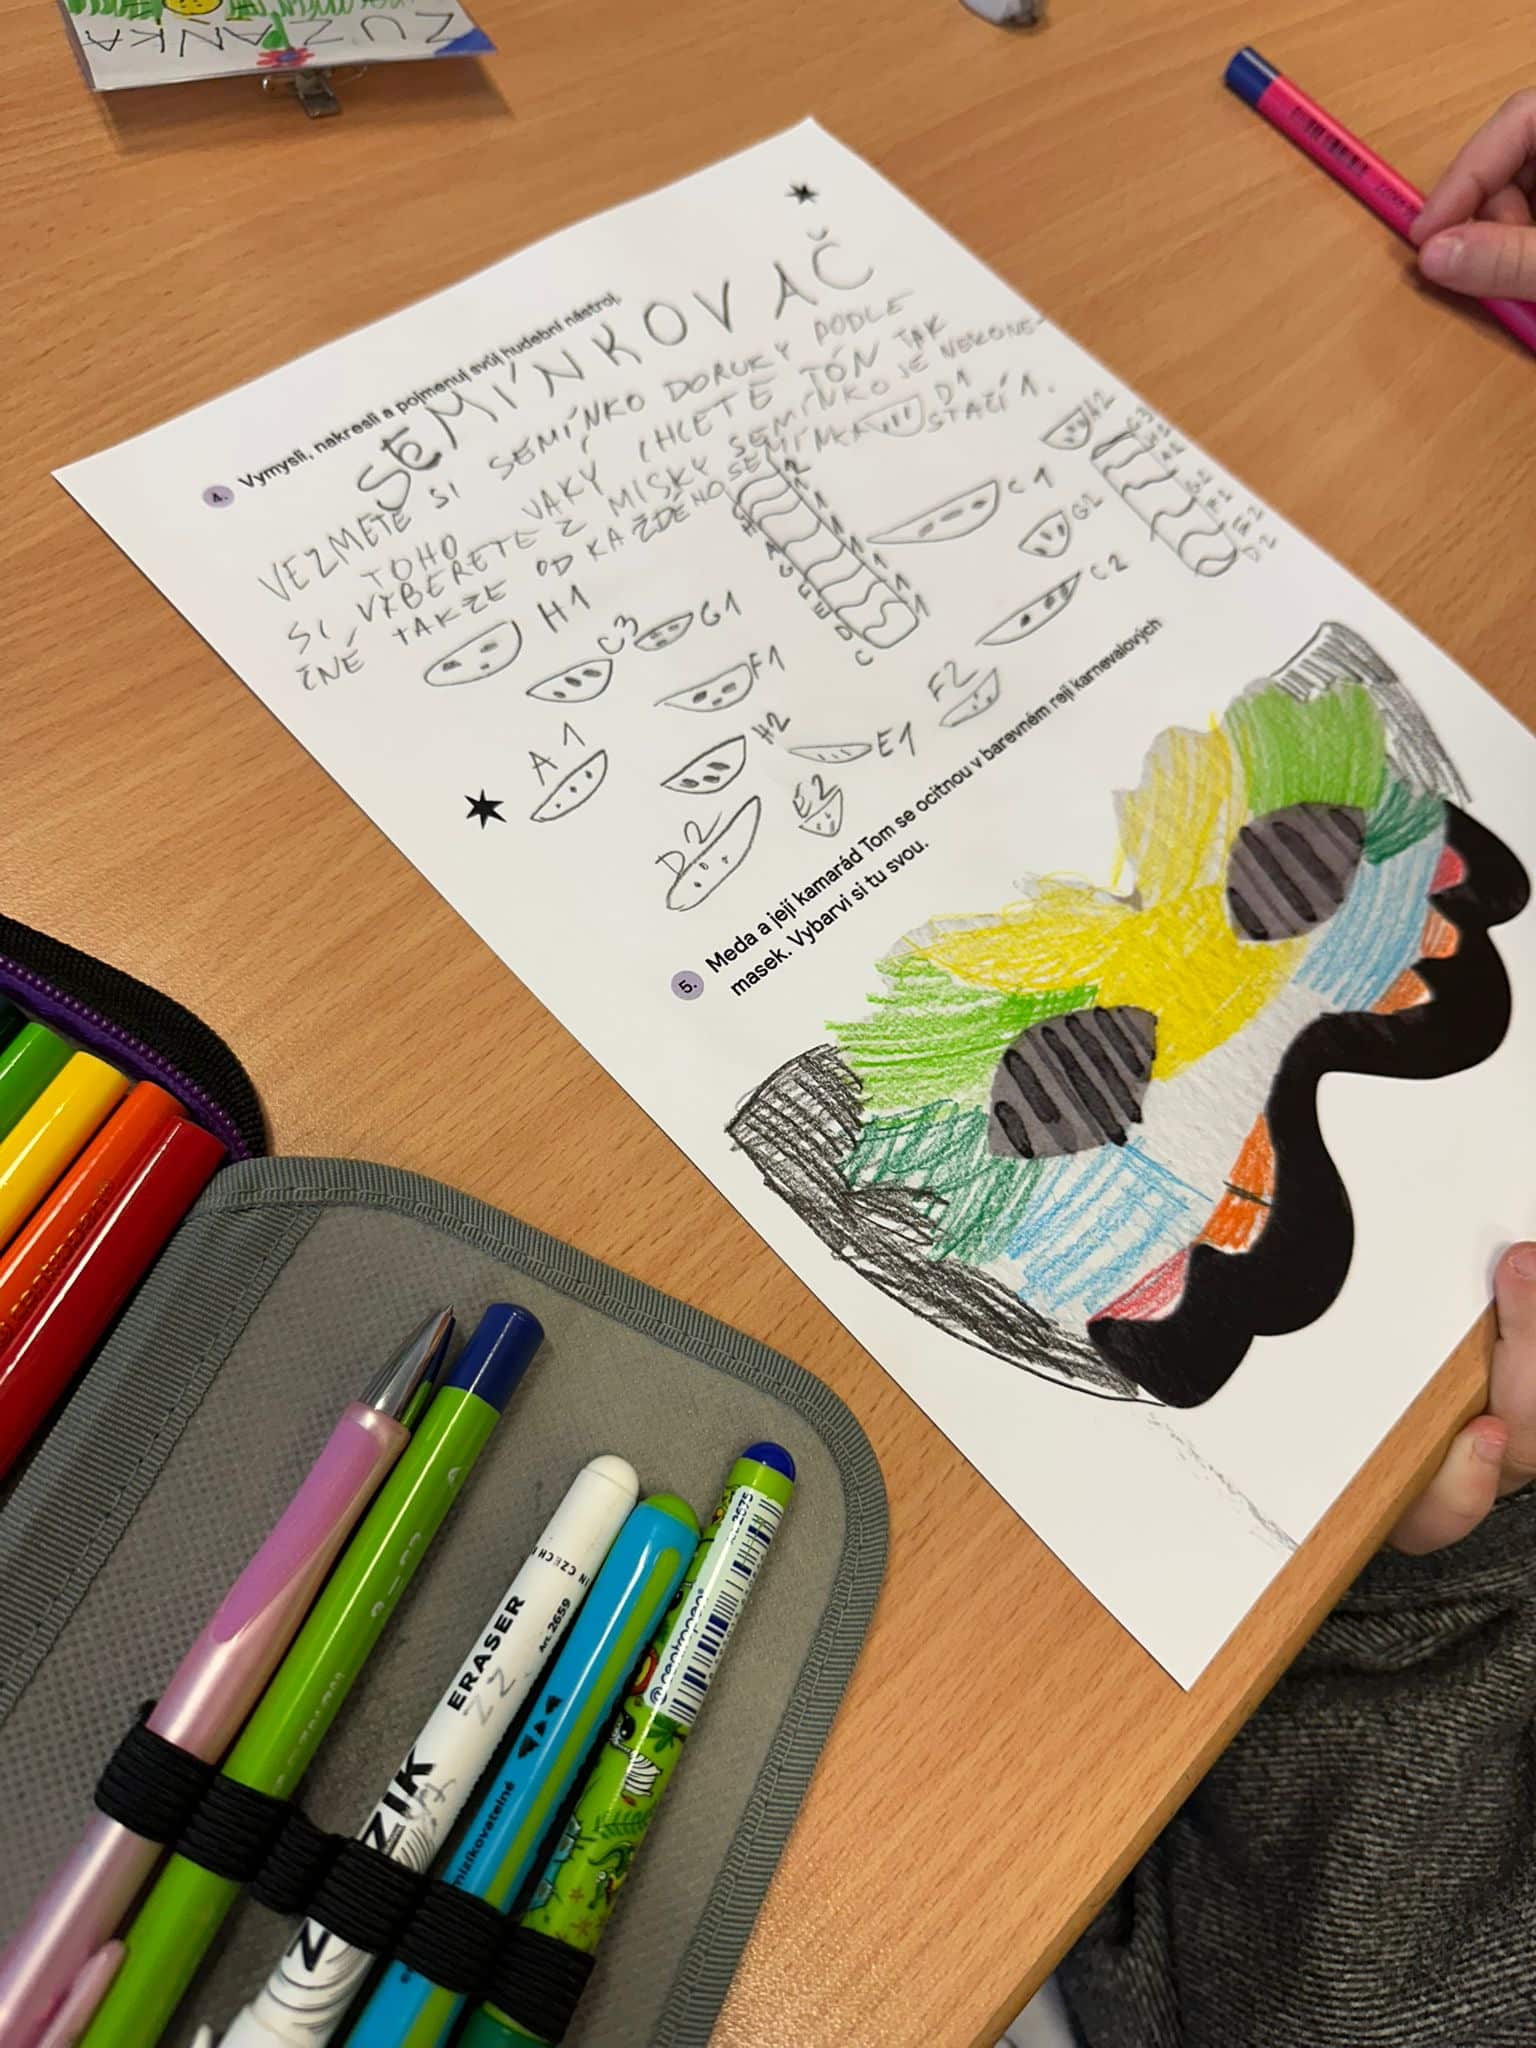 ZUZANKA
4. Vymysli, nakresli a pojmenuj svůj hudební nástroj.
SEMÍNKOVAČ
VEZMETE SI SEMÍNKO DORUKY PODLE
TOHO VAKÝ CHCETE TÓN TAK
SI VYBERETE Z MISKY SEMÍNKO JE NEKONE-
ČNÉ TAKŽE OD KAŽDÉHO SEMÍNKA STAČÍ 1.
D1
H2
C1
G2
C2
H1
C3
G1
F1
F2
A1
H2
E1
E2
D2
H
A
G
E
D
C
5. Meda a její kamarád Tom se ocitnou v barevném reji karnevalových
masek. Vybarvi si tu svou.
ERASER
Art. 2659
IN CZECH
ZZ
centropen
2675